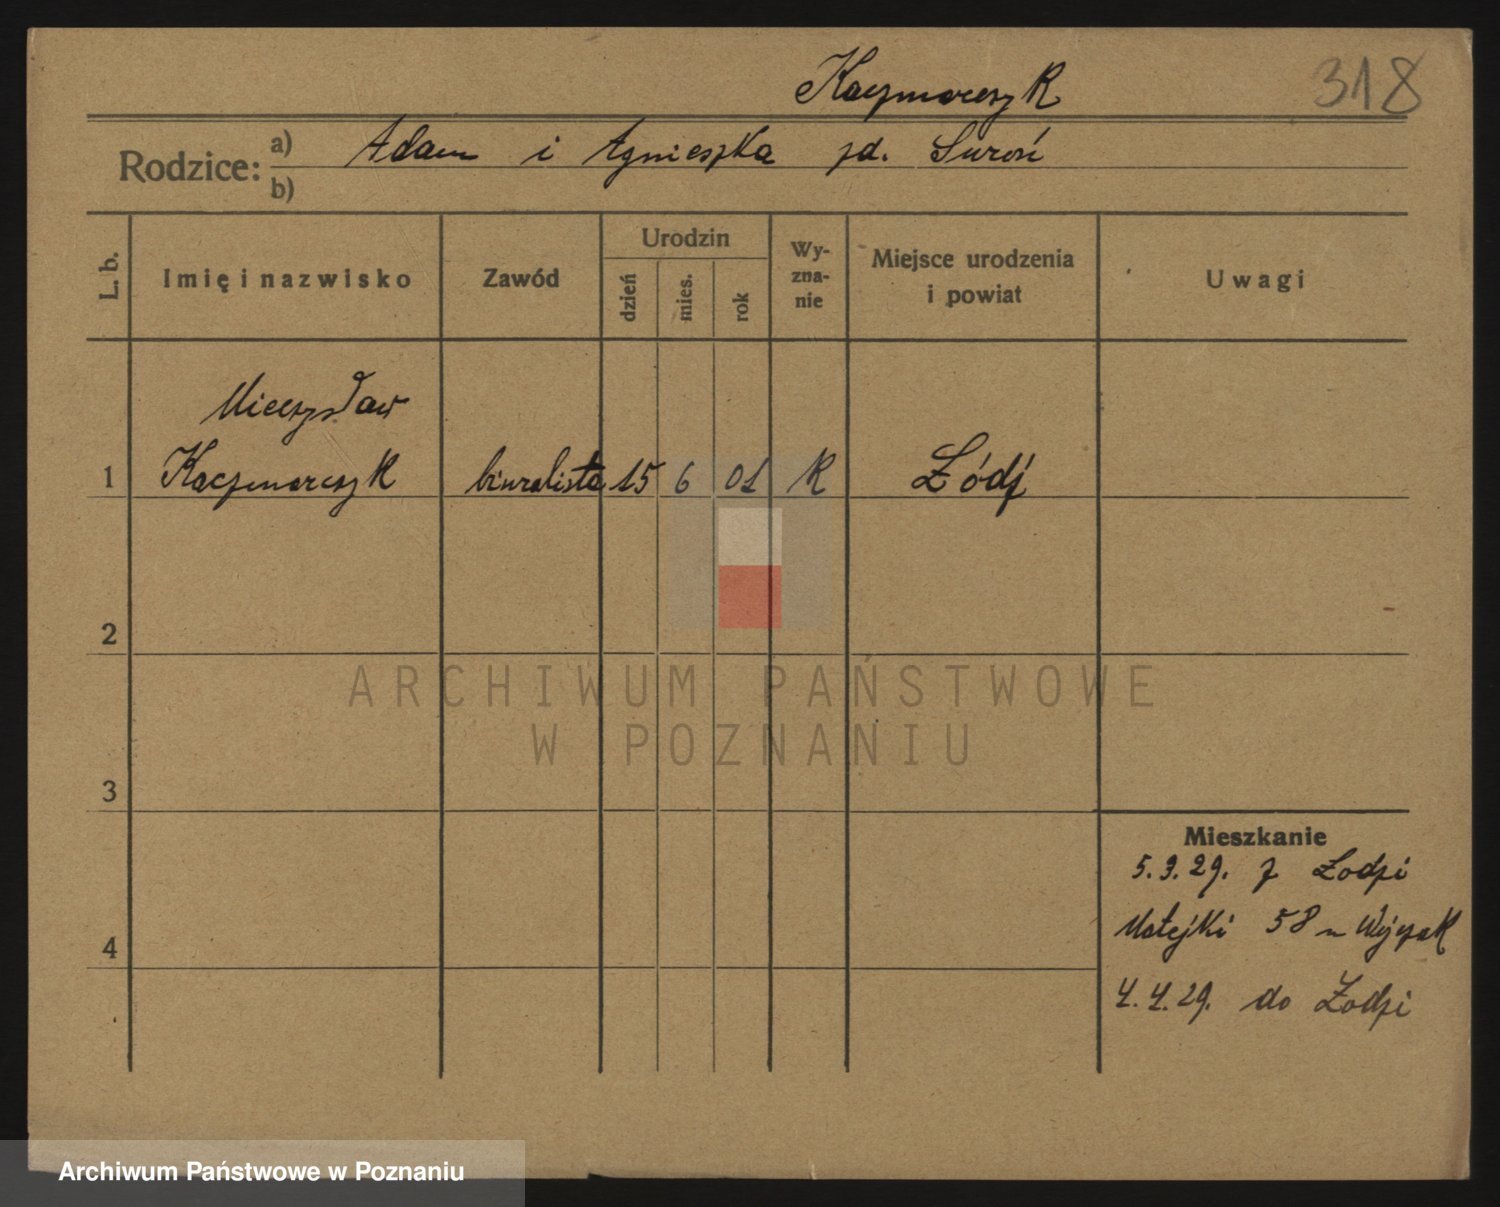 Kaczmarczyk
318
Rodzice:
a) Adam i Agnieszka zd. Suroś
b)
L. b.
Imię i nazwisko
Zawód
Urodzin
dzień
mies.
rok
Wy-
zna-
nie
Miejsce urodzenia
i powiat
Uwagi
Mieczysław
1 Kaczmarczyk biuralista 15 6 01 R Łódź
2
3
4
ARCHIWUM PAŃSTWOWE
W POZNANIU
Mieszkanie
5.3.29. z Łodzi
Matejki 58 u
4.4.29. do Łodzi
Archiwum Państwowe w Poznaniu